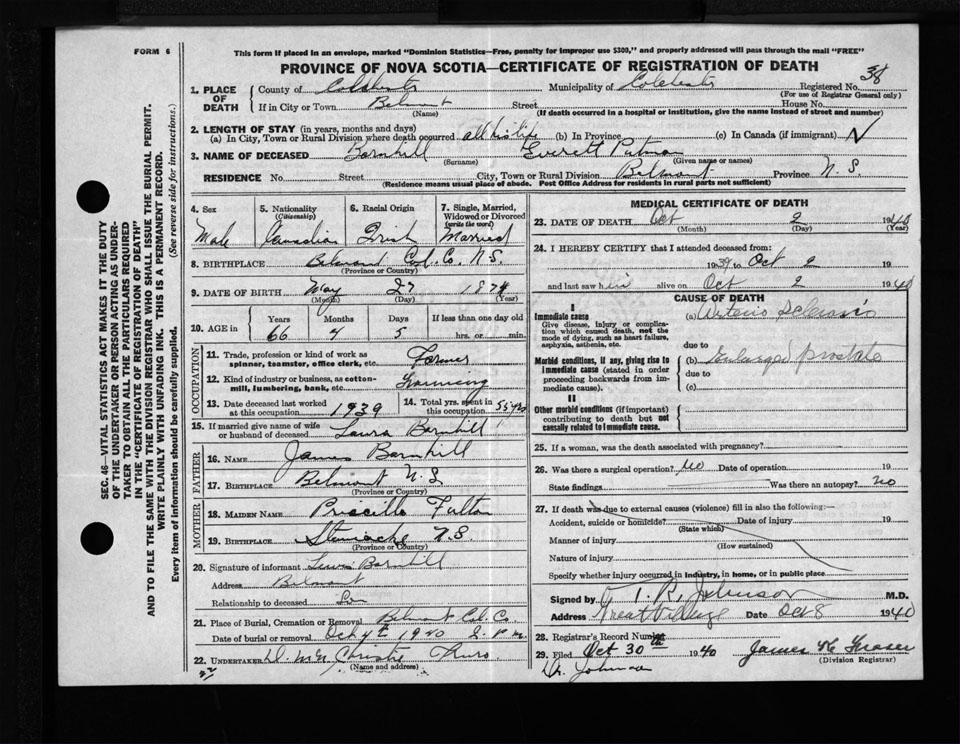 FORM 6
This form if placed in an envelope, marked "Dominion Statistics—Free, penalty for improper use $300," and properly addressed will pass through the mail "FREE"
PROVINCE OF NOVA SCOTIA—CERTIFICATE OF REGISTRATION OF DEATH
SEC. 46—VITAL STATISTICS ACT MAKES IT THE DUTY OF THE UNDERTAKER OR PERSON ACTING AS UNDERTAKER TO OBTAIN ALL THE PARTICULARS REQUIRED IN THE "CERTIFICATE OF REGISTRATION OF DEATH"
AND TO FILE THE SAME WITH THE DIVISION REGISTRAR WHO SHALL ISSUE THE BURIAL PERMIT.
WRITE PLAINLY WITH UNFADING INK. THIS IS A PERMANENT RECORD.
Every item of information should be carefully supplied. (See reverse side for instructions.)
1. PLACE OF DEATH
County of Colchester Municipality of Colchester Registered No. 38
(For use of Registrar General only)
If in City or Town Belmont Street House No.
(Name) (If death occurred in a hospital or institution, give the name instead of street and number)
2. LENGTH OF STAY (in years, months and days)
(a) In City, Town or Rural Division where death occurred all his life (b) In Province (c) In Canada (if immigrant)
3. NAME OF DECEASED Barnhill Everett Putman
(Surname) (Given name or names)
RESIDENCE No. Street City, Town or Rural Division Belmont Province N.S.
(Residence means usual place of abode. Post Office Address for residents in rural parts not sufficient)
4. Sex Male
5. Nationality (Citizenship) Canadian
6. Racial Origin Irish
7. Single, Married, Widowed or Divorced (write the word) Married
8. BIRTHPLACE Belmont Col. Co. N.S.
(Province or Country)
9. DATE OF BIRTH May 27 1874
(Month) (Day) (Year)
10. AGE in Years Months Days If less than one day old
66 4 5 hrs. or min.
OCCUPATION
11. Trade, profession or kind of work as spinner, teamster, office clerk, etc. Farmer
12. Kind of industry or business, as cotton-mill, lumbering, bank, etc. Farming
13. Date deceased last worked at this occupation 1939
14. Total yrs. spent in this occupation 55 yrs
15. If married give name of wife or husband of deceased Laura Barnhill
FATHER
16. NAME James Barnhill
17. BIRTHPLACE Belmont N.S
(Province or Country)
MOTHER
18. MAIDEN NAME Priscilla Fulton
19. BIRTHPLACE Stewiacke N.S.
(Province or Country)
20. Signature of informant Lewis Barnhill
Address Belmont
Relationship to deceased Son
21. Place of Burial, Cremation or Removal Belmont Col. Co.
Date of burial or removal Oct 4th 1940 2. P.m.
22. UNDERTAKER Christie Truro
(Name and address)
MEDICAL CERTIFICATE OF DEATH
23. DATE OF DEATH Oct 2 1940
(Month) (Day) (Year)
24. I HEREBY CERTIFY that I attended deceased from:
1939 to Oct 2
and last saw him alive on Oct 2 1940
CAUSE OF DEATH
I
Immediate cause
Give disease, injury or complication which caused death, not the mode of dying, such as heart failure, asphyxia, asthenia, etc.
(a) Arterio Sclerosis
due to
Morbid conditions, if any, giving rise to immediate cause (stated in order proceeding backwards from immediate cause).
(b) Enlarged prostate
due to
(c)
II
Other morbid conditions (if important) contributing to death but not causally related to immediate cause.
25. If a woman, was the death associated with pregnancy?
26. Was there a surgical operation? No Date of operation 19
State findings Was there an autopsy? no
27. If death was due to external causes (violence) fill in also the following:—
Accident, suicide or homicide? Date of injury 19
(State which)
Manner of injury
(How sustained)
Nature of injury
Specify whether injury occurred in industry, in home, or in public place
Signed by T. R. Johnson M.D.
Address Great Village Date Oct 8 1940
28. Registrar's Record Number
29. Filed Oct 30th 1940 James Fraser
(Division Registrar)
Dr. Johnson